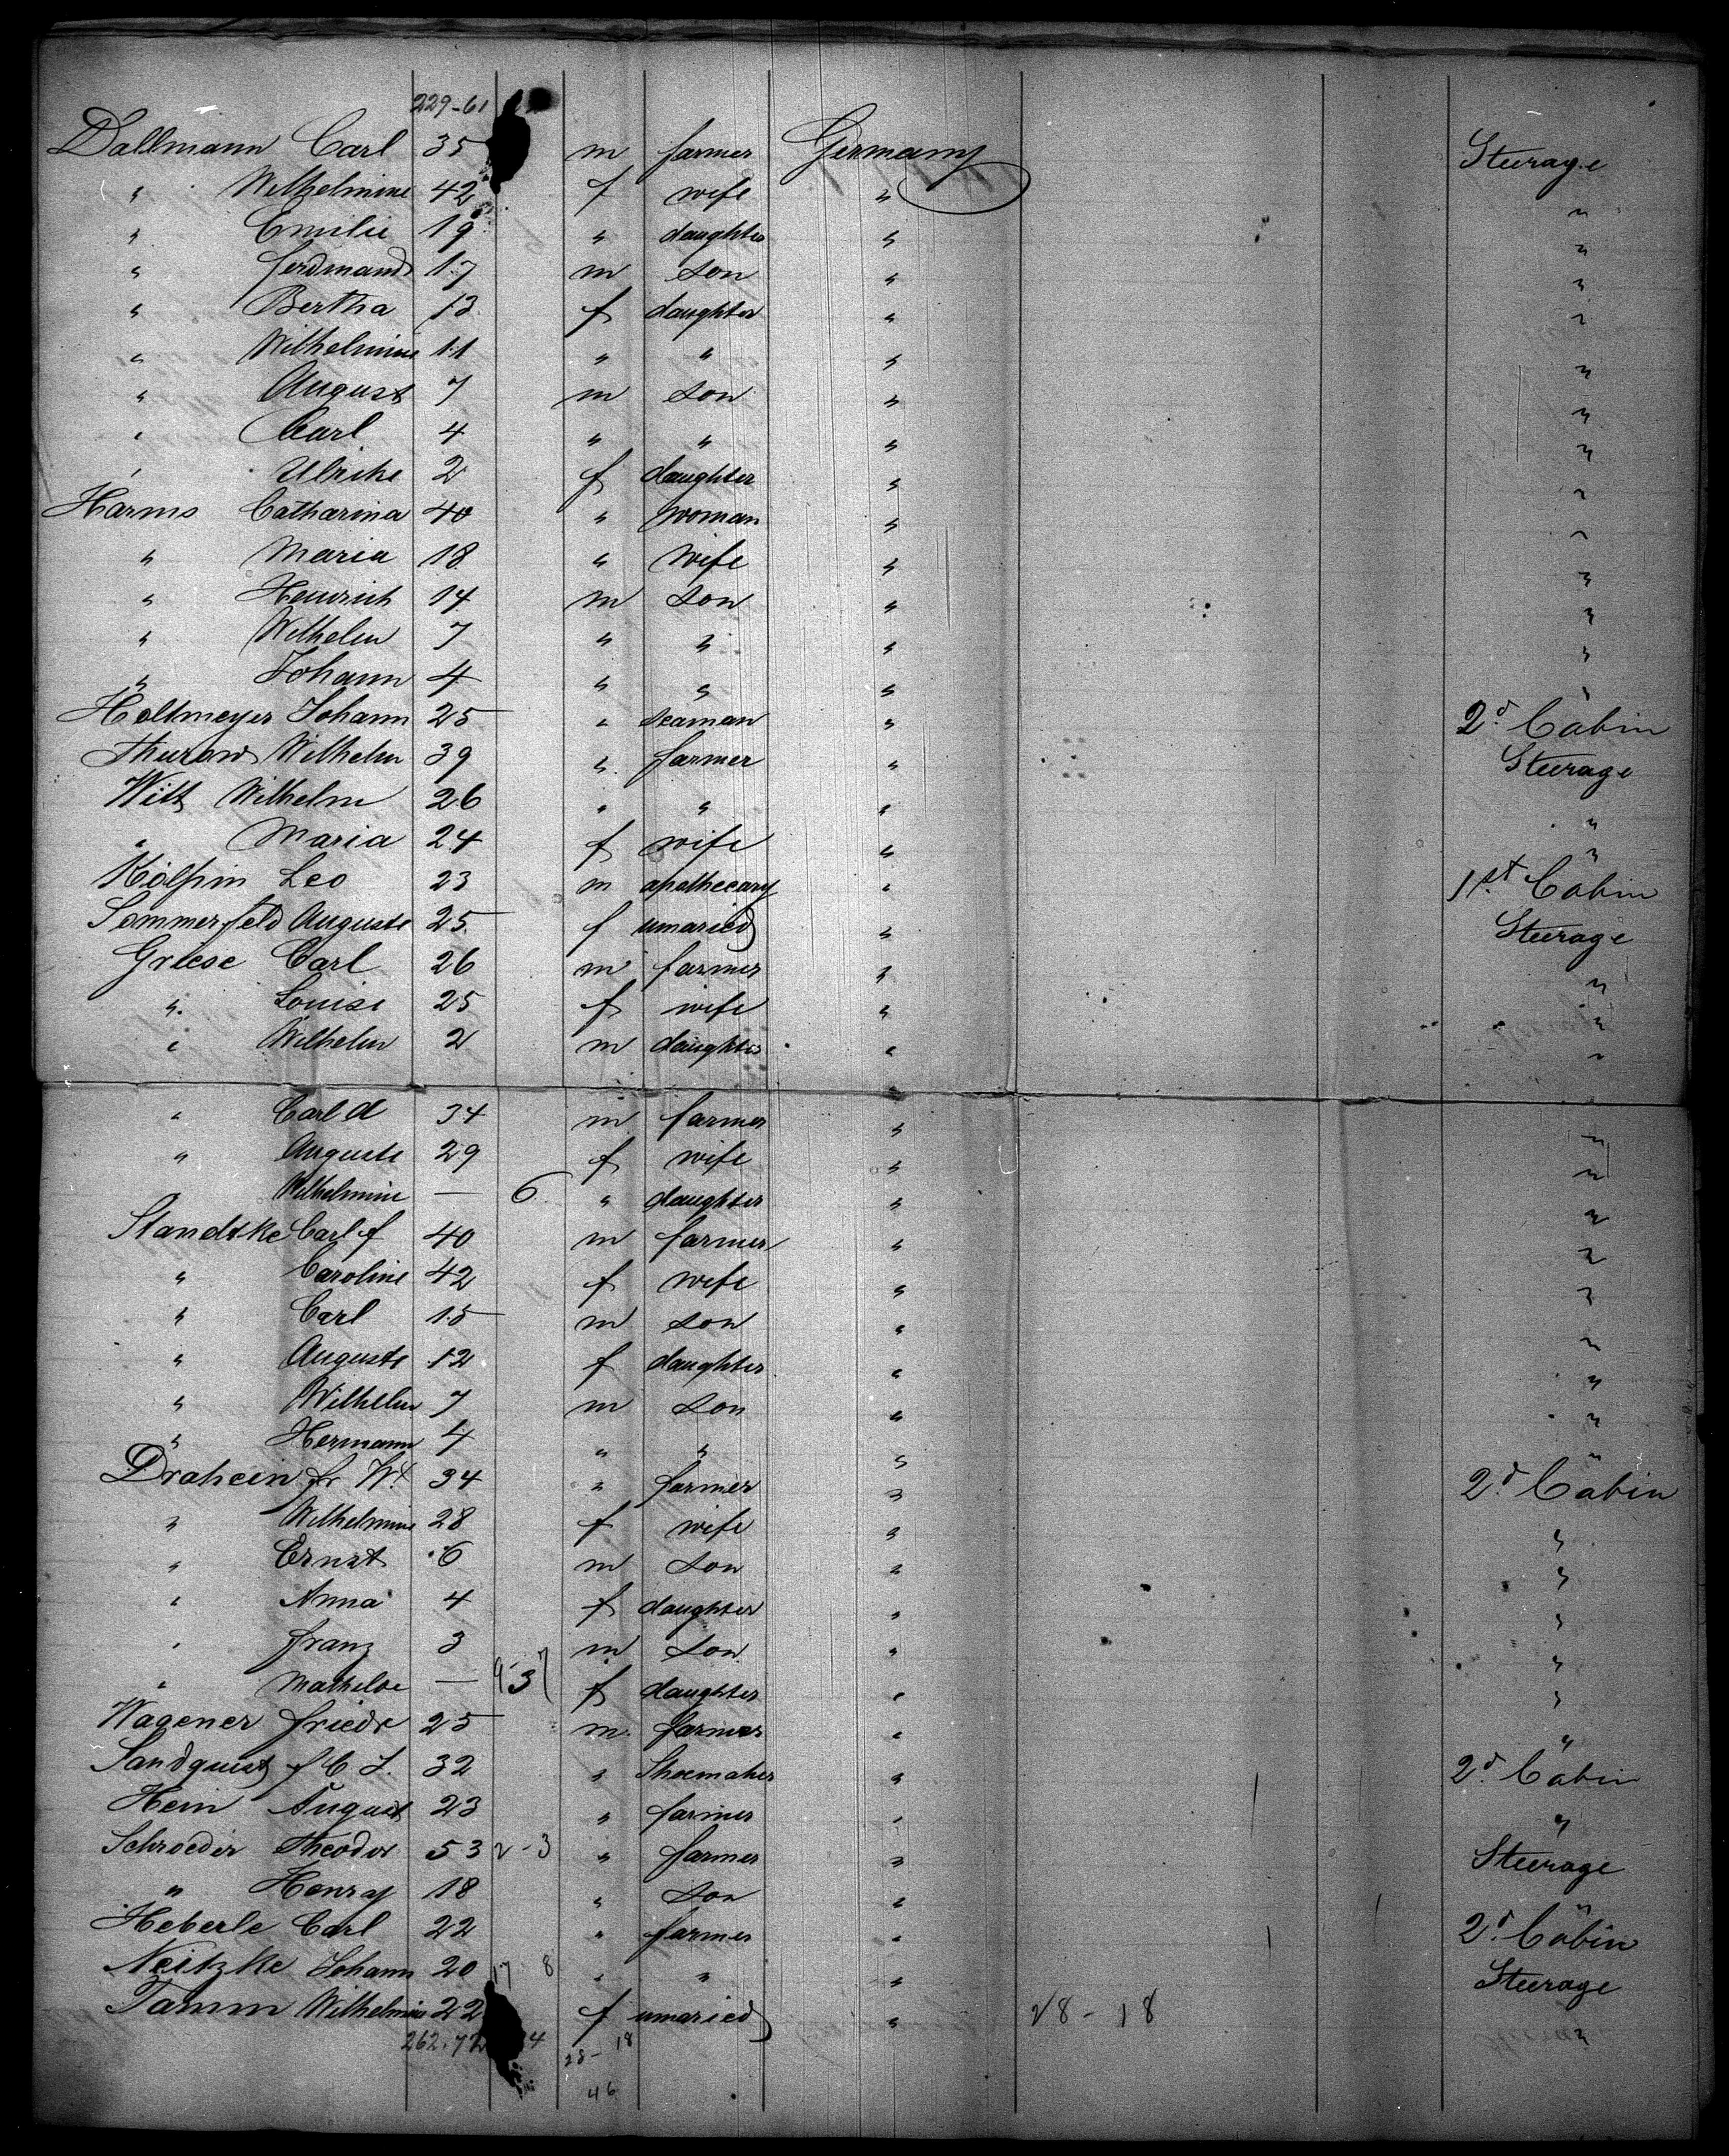 229-61
Dallmann Carl 35 m farmer Germany Steerage
" Wilhelmine 42 f wife " "
" Emilie 19 " daughter " "
" Ferdinand 17 m son " "
" Bertha 13 f daughter " "
" Wilhelmine 11 " " " "
" August 7 m son " "
" Carl 4 " " " "
" Ulrike 2 f daughter " "
Harms Catharina 40 " woman " "
" Maria 18 " wife " "
" Heinrich 14 m son " "
" Wilhelm 7 " " " "
" Johann 4 " " " "
Holtmeyer Johann 25 " seaman " 2d Cabin
Thurow Wilhelm 39 " farmer " Steerage
Witt Wilhelm 26 " " " "
" Maria 24 f wife " "
Kölpin Leo 23 m apothecary " 1st Cabin
Sommerfeld Auguste 25 f umaried " Steerage
Griese Carl 26 m farmer " "
" Louise 25 f wife " "
" Wilhelm 2 m daughter " "
" Carl A 34 m farmer " "
" Auguste 29 f wife " "
" Wilhelmine — 6 " daughter " "
Standtke Carl F 40 m farmer " "
" Caroline 42 f wife " "
" Carl 15 m son " "
" Auguste 12 f daughter " "
" Wilhelm 7 m son " "
" Hermann 4 " " " "
Drahein Fr W. 34 " farmer " 2d Cabin
" Wilhelmine 28 f wife " "
" Ernst 6 m son " "
" Anna 4 f daughter " "
" Franz 3 m son " "
" Mathilde — 9 3 f daughter " "
Wagener Friedr 25 m farmer " "
Sandquist F C J. 32 " Shoemaker " 2d Cabin
Hein August 23 " farmer " "
Schroeder Theodor 53 2-3 " farmer " Steerage
" Henry 18 " son " "
Heberle Carl 22 " farmer " 2d Cabin
Neitzke Johann 20 17 8 " " " Steerage
Tamm Wilhelmine 22 f umaried " 28-18 "
262.72 4 28-18
46